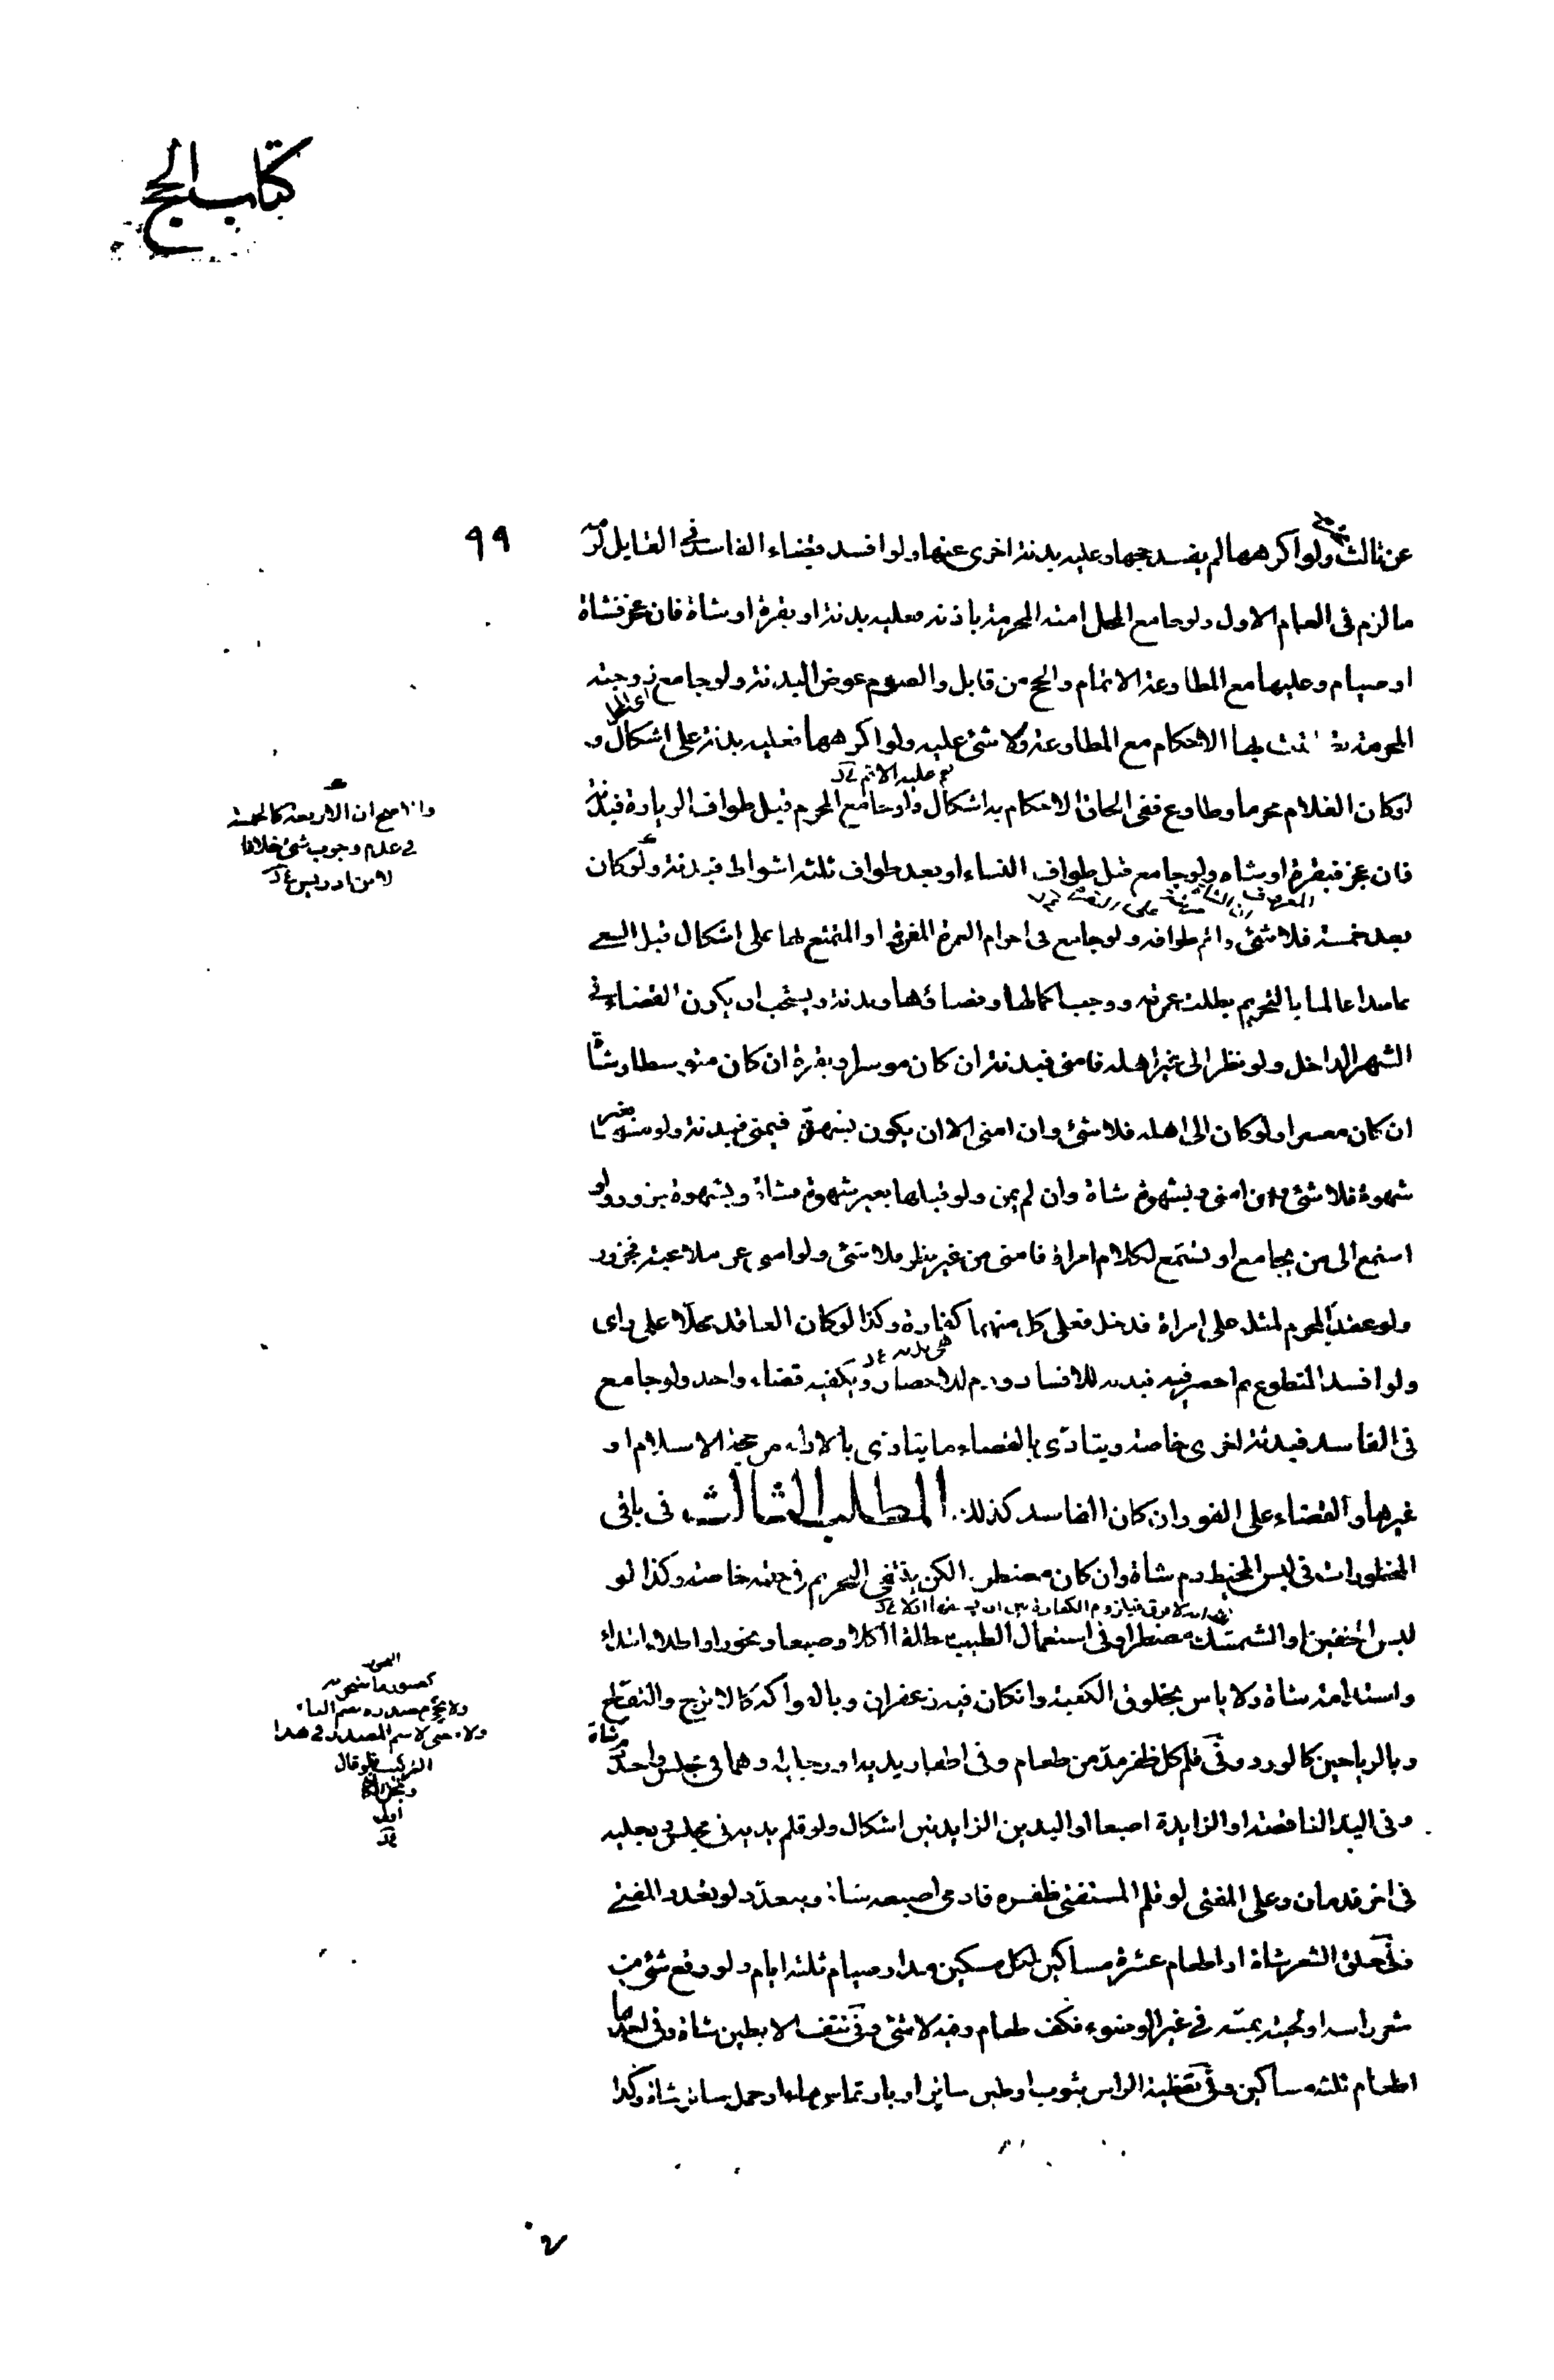 كتاب الحج
٩٩
عن ثالث ولو اكرهها لم يفسد حجها وعليه بدنة اخرى عنها ولو افسد قضاء الفاسد في القابل لزمه
ما لزم في العام الاول ولو جامع المحل امته المحرمة باذنه فعليه بدنة او بقرة او شاة فان عجز فشاة
او صيام وعليها مع المطاوعة الاتمام والحج من قابل والصوم عوض البدنة ولو جامع زوجته
المحرمة تعلقت بها الاحكام مع المطاوعة ولا شئ عليه ولو اكرهها فعليه بدنة على اشكال و
نعم عليه الاثم
لو كان الغلام محرما وطاوع ففي الحاق الاحكام به اشكال ولو جامع المحرم قبل طواف الزيارة فبدنة
فان عجز فبقرة او شاه ولو جامع قبل طواف النساء او بعد طواف ثلثه اشواط فبدنة ولو كان
بعد خمسة فلا شئ واتم طوافه ولو جامع في احرام العمرة المفردة او المتمتع بها على اشكال قبل السعي
عامدا عالما بالتحريم بطلت عمرته ووجب اكمالها وقضاؤها وبدنة ويستحب ان يكون القضاء في
الشهر الداخل ولو نظر الى غير اهله فامنى فبدنة ان كان موسرا وبقرة ان كان متوسطا وشاة
ان كان معسرا ولو كان الى اهله فلا شئ وان امنى الا ان يكون بشهوة فيمنى فبدنة ولو مسها بغير
شهوة فلا شئ وان امنى وبشهوة شاة وان لم يمن ولو قبلها بغير شهوة فشاة وبشهوة جزور ولو
استمع الى من يجامع او تسمع لكلام امراة فامنى من غير نظر فلا شئ ولو امنى عن ملاعبة فجزور
ولو عقد المحرم لمثله على امراة فدخل فعلى كل منهما كفارة وكذا لو كان العاقد محلا على راى
هي بدنه
ولو افسد المتطوع ثم احصر فيه فبدنه للافساد ودم للاحصار ويكفيه قضاء واحد ولو جامع
في الفاسد فبدنة اخرى خاصة ويتادى بالقضاء ما يتادى بالاداء من حجة الاسلام او
غيرها والقضاء على الفور ان كان الفاسد كذلك. المطلب الثالث في باقي
المحظورات في لبس المخيط دم شاة وان كان مضطرا لكن ينتفى التحريم في حقه خاصة وكذا لو
لبس الخفين او الشمشك مضطرا وفي استعمال الطيب مطلقا اكلا وصبغا وبخورا واطلاء ابتداء
واستدامة شاة ولا باس بخلوق الكعبة وان كان فيه زعفران وبالفواكه كالاترج والتفاح
وبالرياحين كالورد وفي قلم كل ظفر مد من طعام وفي اظفار يديه او رجليه او هما في مجلس واحد دم شاة
وفي اليد الناقصة او الزايدة اصبعا او اليدين الزايدتين اشكال ولو قلم يديه في مجلس ورجليه
في اخر فدمان وعلى المفتى لو قلم المستفتى ظفره فادمى اصبعه شاة ويتعدد لو تعدد المفتي
وفي حلق الشعر شاة او اطعام عشرة مساكين لكل مسكين مد او صيام ثلثه ايام ولو وقع شئ من
شعر راسه او لحيته بمسه في غير الوضوء فكف طعام وفيه لا شئ وفي نتف الابطين شاة وفي احدهما
اطعام ثلثه مساكين وفي تغطية الراس بثوب او طين ساتر او بارتماس في ماء او حمل ساتر شاة وكذا
والاصح ان الاربعة كالخمسة
في عدم وجوب شئ خلافا
لابن ادريس